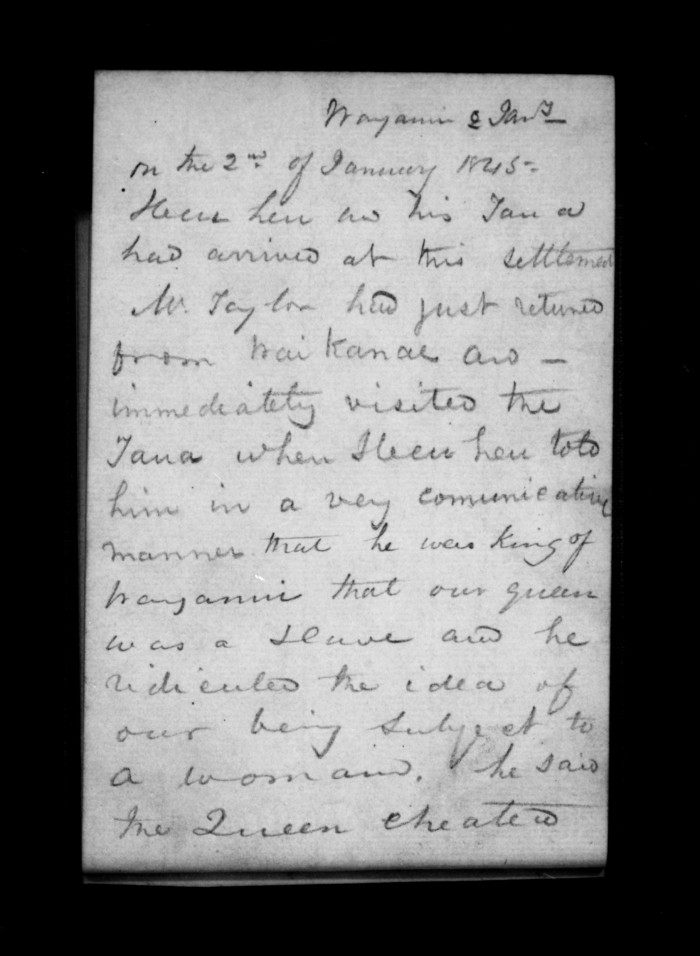 Wanganui 8 Jan.y
on the 2nd. of January 1845-
Heeu heu and his Taua
had arrived at this settlement
Mr. Taylor had just returned
from Wai Kanae and -
immediately visited the
Taua when Heeu heu told
him in a very comunicating
manner that he was King of
Wanganui that our queen
was a Slave and he
ridiculed the idea of
our being subject to
a woman. he said
the Queen cheated